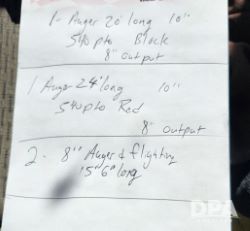 1- Auger 20' long 10"
540 pto Black
8" output
1 Auger 24' long 10"
540 pto Red
8" output
2- 8" Auger & flighting
15' 6" long
DPA